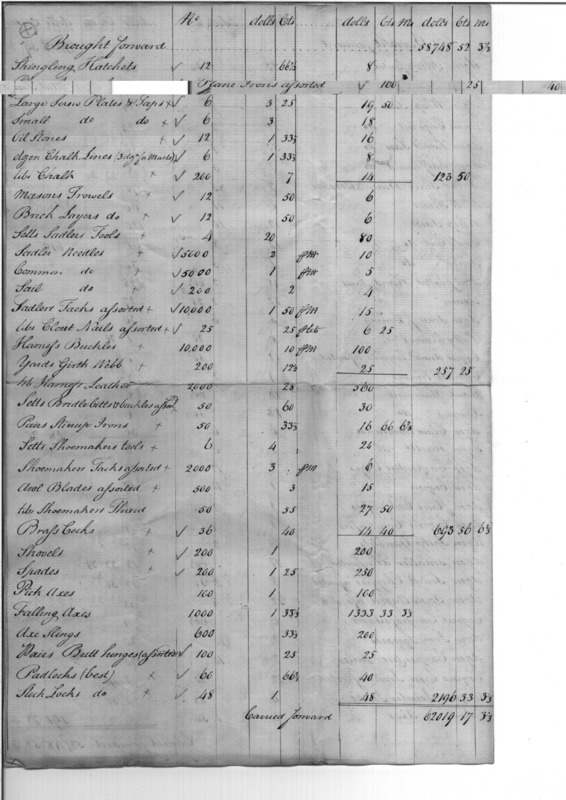 No dolls Cts dolls Cts Ms dolls Cts Ms
Brought forward 58748 52 3⅓
Shingling Hatchets √ 12 66⅔ 8
Plane Irons assorted √ 100 25 40
Large Screw Plates & Taps + √ 6 3 25 19 50
Small do do + √ 6 3 18
Oil Stones + √ 12 1 33⅓ 16
dozen Chalk Lines √ 6 1 33⅓ 8
lbs Chalk √ 200 7 14 123 50
Masons Trowels + √ 12 50 6
Brick Layers do + √ 12 50 6
Setts Sadlers Tools + 4 20 80
Sadler Needles + √ 5000 2 pM 10
Common do + √ 5000 1 pM 5
Sail do + √ 200 2 4
Sadlers Tacks assorted + √ 10,000 1 50 pM 15
lbs Clout Nails assorted + √ 25 25 plb 6 25
Harness Buckles + 10,000 10 pM 100
Yards Girth Webb + 200 12½ 25 257 25
lb Harness Leather 2,000 28 560
Setts Bridle bitts & buckles assd 50 60 30
Pairs Stirrup Irons + 50 33⅓ 16 66 6⅔
Setts Shoemakers tools + 6 4 24
Shoemakers Tacks assorted + 2000 3 pM 6
Awl Blades assorted + 500 3 15
lbs Shoemakers Thread 50 55 27 50
Brass Cocks + √ 36 40 14 40 693 56 6⅔
Shovels + √ 200 1 200
Spades + √ 200 1 25 250
Pick Axes 100 1 100
Falling Axes 1000 1 33⅓ 1333 33 3⅓
Axe Slings 600 33⅓ 200
Pairs Butt hinges (assorted) √ 100 25 25
Padlocks (best) + √ 60 66⅔ 40
Stock Locks do + √ 48 1 48 2196 33 3⅓
Carried forward 62019 17 3⅓